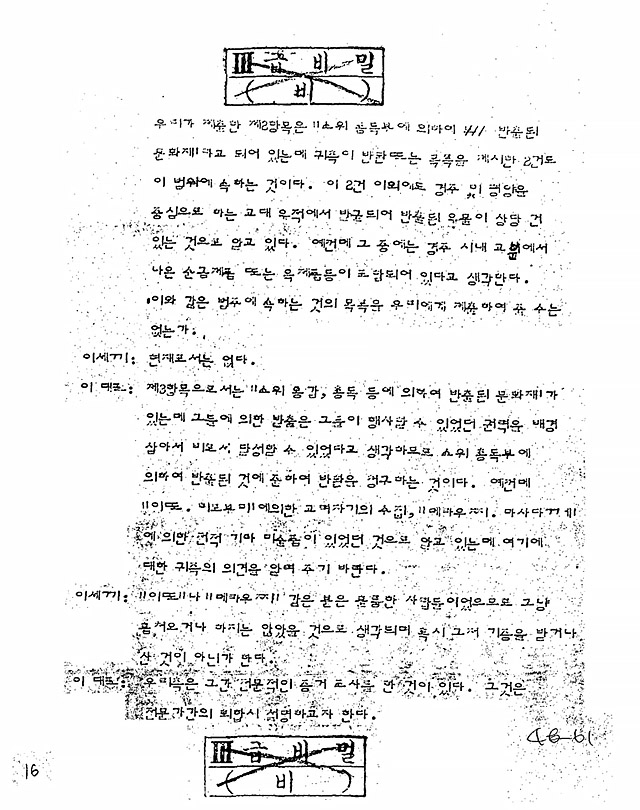 III 급 비 밀
( 비 )
우리가 제출한 제2항목은 "소위 총독부에 의하여 반출된
문화재"라고 되어 있는데 귀측이 반환 또는 목록을 제시한 2건도
이 범위에 속하는 것이다. 이 2건 이외에도 경주 및 평양을
중심으로 하는 고대 유적에서 발굴되어 반출된 유물이 상당 건
있는 것으로 알고 있다. 예컨데 그 중에는 경주 시내 고분에서
나온 순금제품 또는 옥제품등이 포함되어 있다고 생각한다.
이와 같은 범주에 속하는 것의 목록을 우리에게 제출하여 줄 수는
없는가.
이세끼: 현재로서는 없다.
이 대표: 제3항목으로서는 "소위 통감, 총독 등에 의하여 반출된 문화재"가
있는데 그들에 의한 반출은 그들이 행사할 수 있었던 권력을 배경
삼아서 비로서 달성할 수 있었다고 생각하므로 소위 총독부에
의하여 반출된 것에 준하여 반환을 청구하는 것이다. 예컨데
"이또. 히로부미"에의한 고려자기의 수집, "데라우찌. 마사다께"
에 의한 전적 기타 미술품이 있었던 것으로 알고 있는데 여기에
대한 귀측의 의견을 알려 주기 바란다.
이세끼: "이또"나 "데라우찌" 같은 분은 훌륭한 사람들이었으므로 그냥
훔쳐오거나 하지는 않았을 것으로 생각되며 혹시 그저 기증을 받거나
산 것이 아닌가 한다.
이 대표: 우리측은 그간 전문적인 증거 조사를 한 것이 있다. 그것은
전문가간의 회합시 설명하고자 한다.
46-61
III 급 비 밀
( 비 )
16